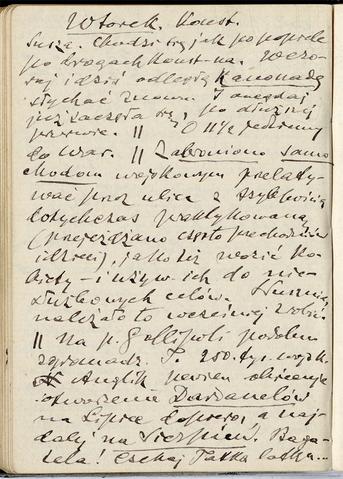 Wtorek. Konst.
Susza. Chodzi się jak po popiele
po drogach konst-na. Wczo-
raj i dziś odległą kanonadę
słychać znowu. Onegdaj
już zaczęła się, po dłuższej
przerwie. || O 11½ jedziemy
do War. || Zabroniono samo
chodom wojskowym przelaty-
wać przez ulice z szybkością
dotychczas praktykowaną
(przejeżdżano często przechodniów
i dzieci), jako też wozić ko-
biety i używ. ich do nie-
służbowych celów. Słusznie,
należało to wcześniej zrobić.
|| na p. Gallipoli podobno
zgromadz. 250. tys. wojsk.
Anglik pewien obiecuje
otworzenie Dardanelów
na Lipiec dopiero, a naj-
dalej na Sierpień. Baga-
tela! Czekaj Tatka latka...